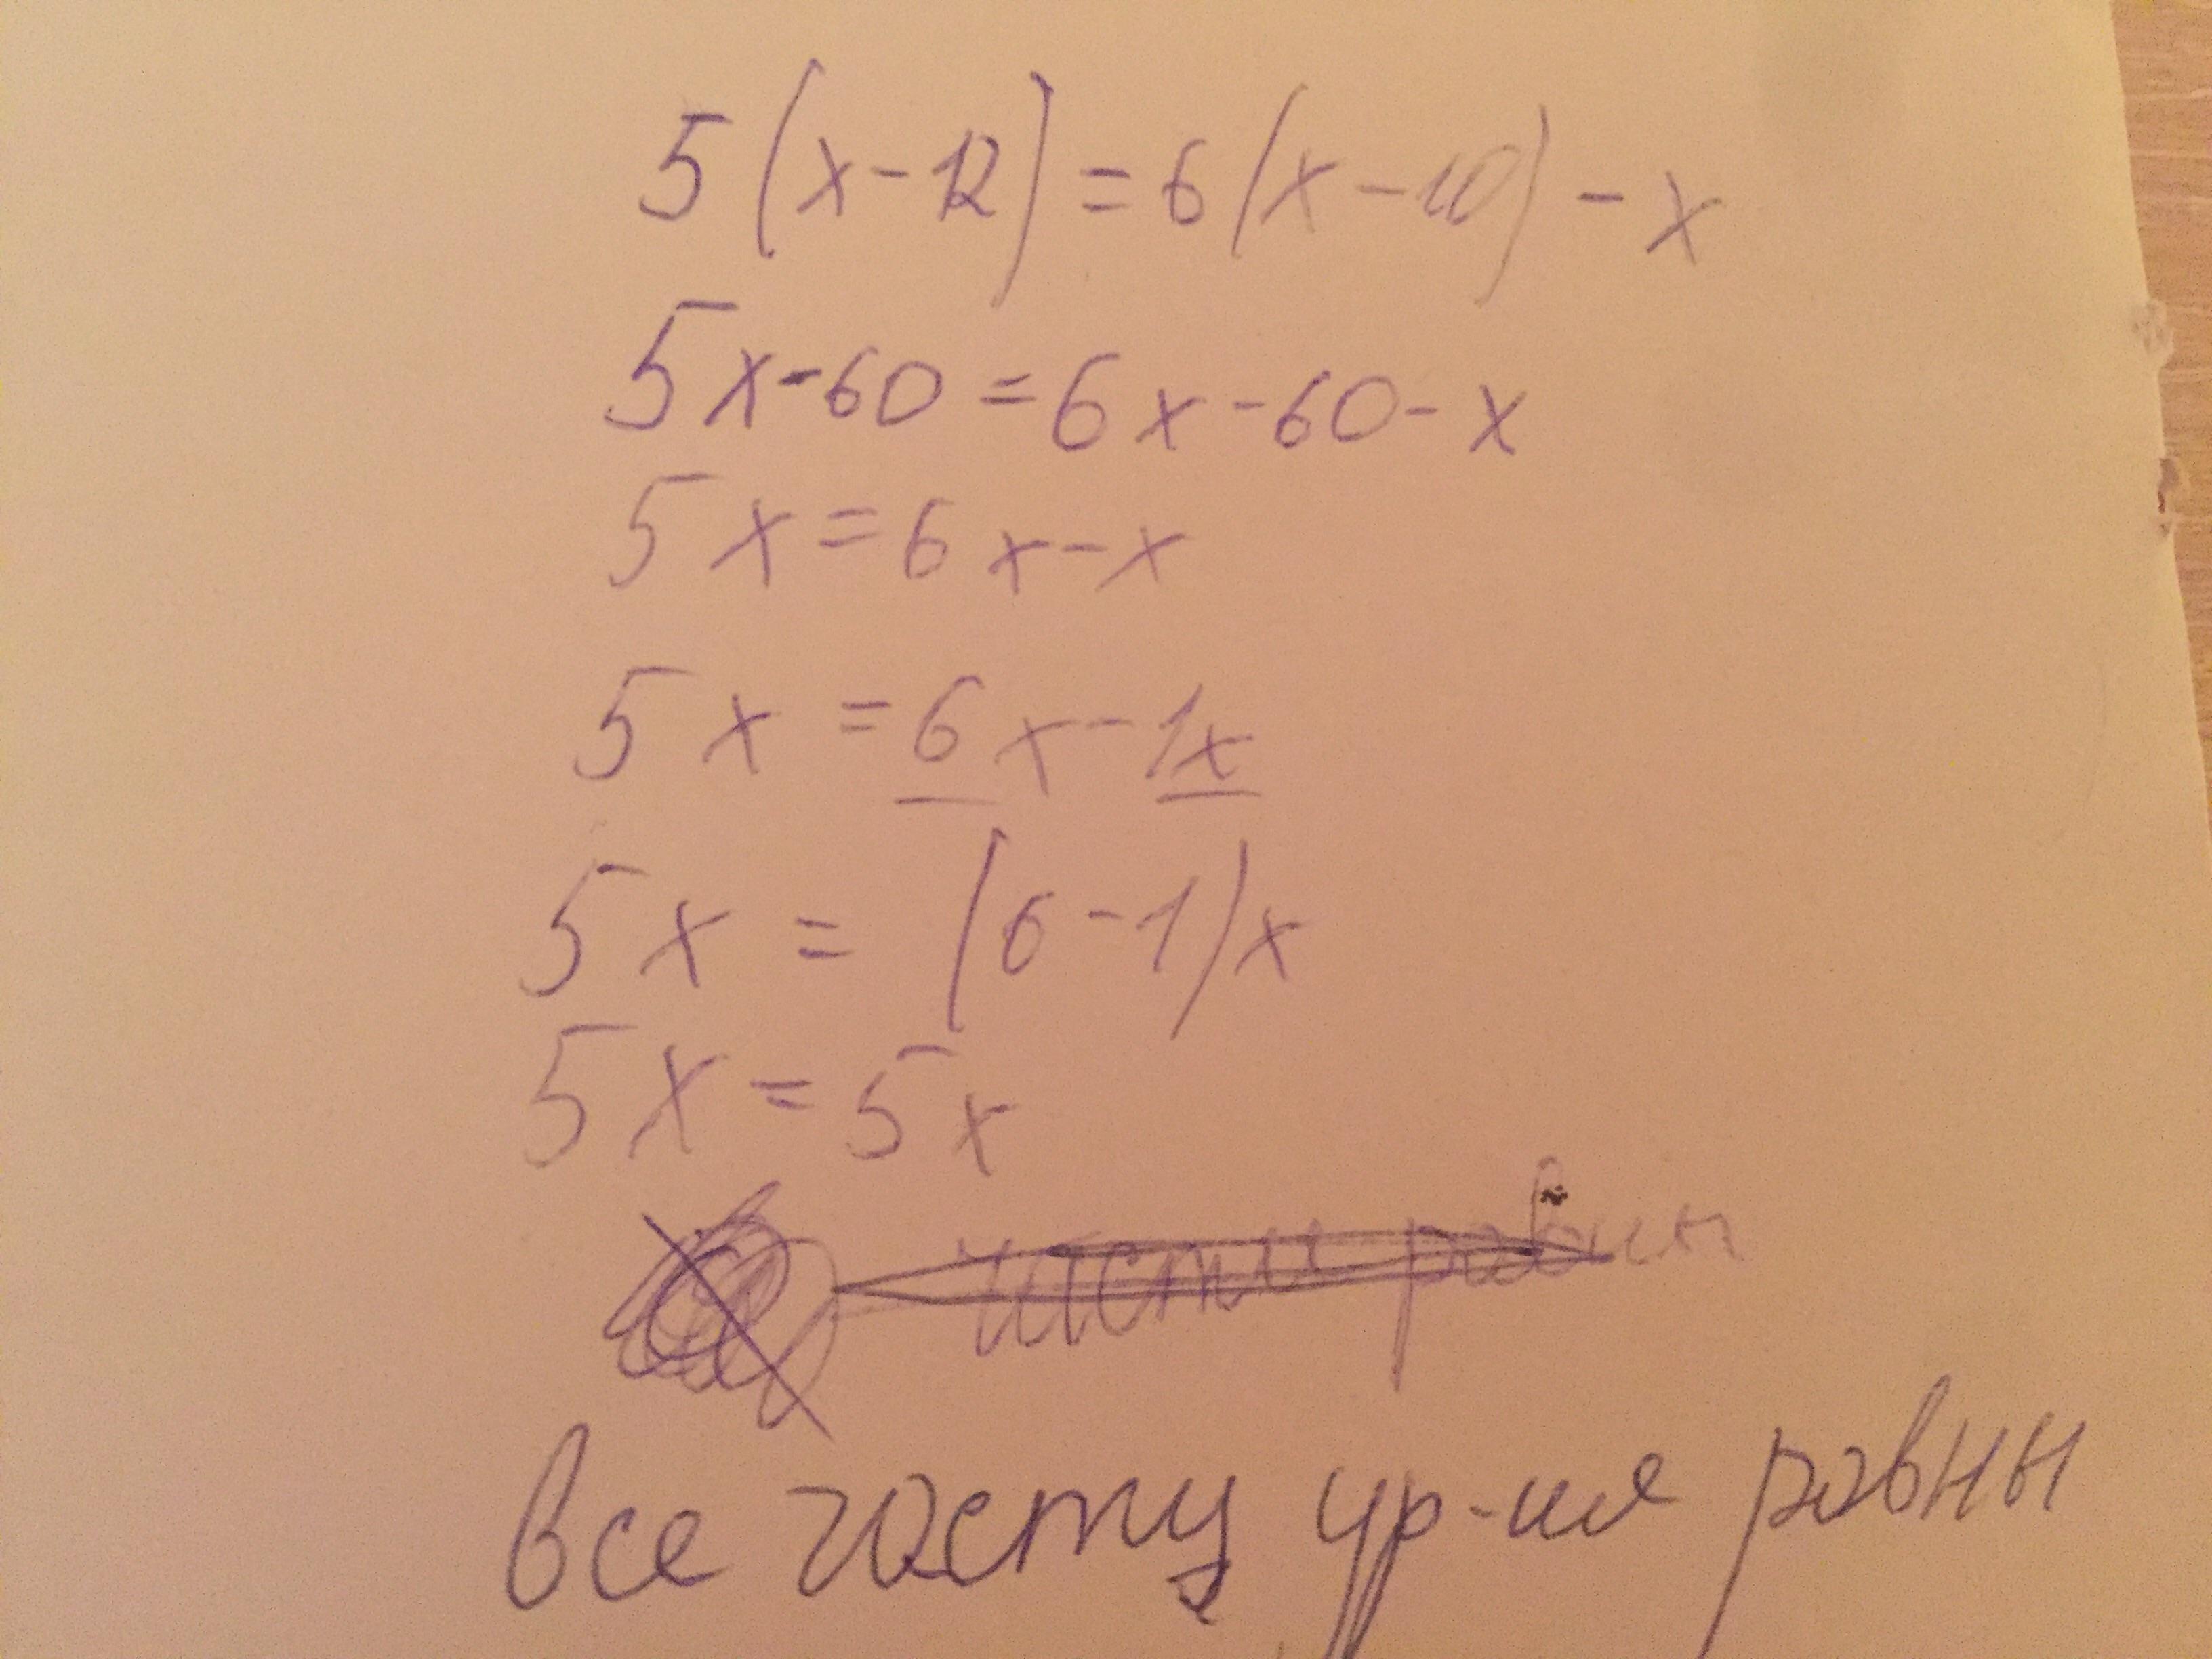 5(x-12)=6(x-10)-x
5x-60=6x-60-x
5x=6x-x
5x=6x-1x
5x=(6-1)x
5x=5x
части равын
все части ур-ия равны